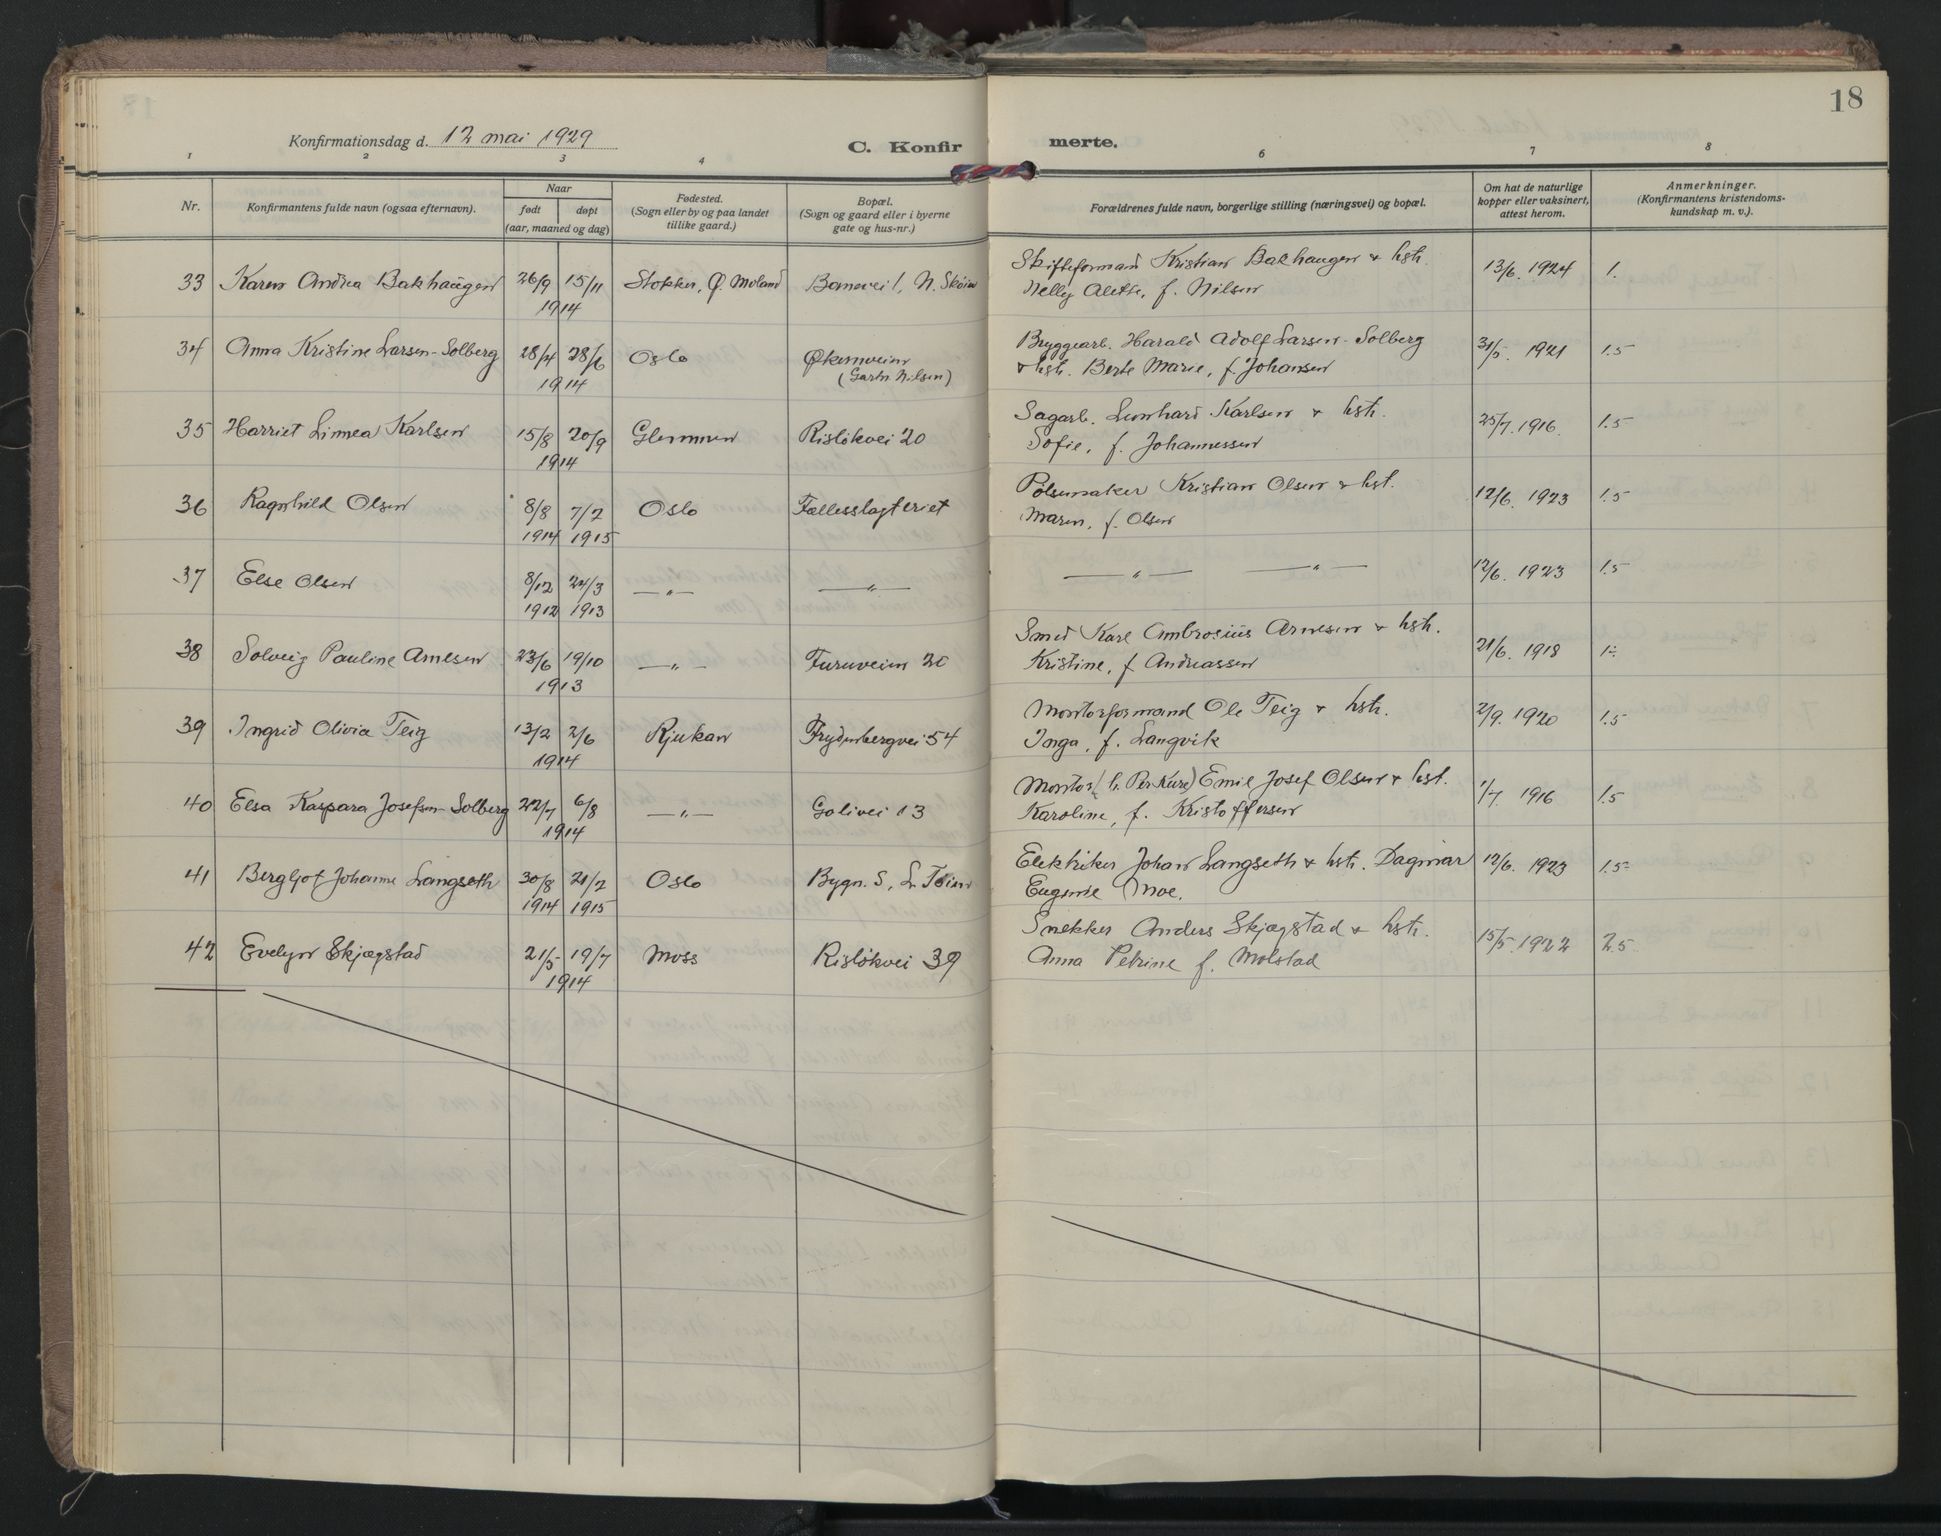 18
Konfirmationsdag d. 12 mai 1929
C. Konfirmerte.
1 2 3 4 6 7 8
Nr.
Konfirmantens fulde navn (ogsaa efternavn).
Naar
født døpt
(aar, maaned og dag)
Fødested.
(Sogn eller by og paa landet
tillike gaard.)
Bopæl.
(Sogn og gaard eller i byerne
gate og hus-nr.)
Forældrenes fulde navn, borgerlige stilling (næringsvei) og bopæl.
Om hat de naturlige
kopper eller vaksinert,
attest herom.
Anmerkninger.
(Konfirmantens kristendoms-
kundskap m. v.).
33 Karen Andrea Bakhaugen 26/9 15/11 Stokken, Ø. Moland Banevei 1, N. Skøien Skifteformand Kristian Bakhaugen & hstr. 13/6. 1924 1.
1914 Nelly Alette, f. Nilsen
34 Anna Kristine Larsen-Solberg 28/4 28/6 Oslo Økernveien Bryggearb. Harald Adolf Larsen-Solberg 31/5. 1921 1.5
1914 (Gartn. Nilsen) & hstr. Berte Marie, f. Johansen
35 Harriet Linnea Karlsen 15/8 20/9 Glemmen Risløkvei 20 Sagarb. Leonhard Karlsen & hstr. 25/7. 1916. 1.5
1914 Sofie, f. Johannessen
36 Ragnhild Olsen 8/8 7/2 Oslo Fællesslagteriet Pølsemaker Kristian Olsen & hst. 12/6. 1923 1.5
1914 1915 Maren, f. Olsen
37 Else Olsen 8/12 24/3 —〃— —〃— —〃— —〃— 12/6. 1923 1.5
1912 1913
38 Solveig Pauline Arnesen 23/6 19/10 —〃— Furuveien 20 Smed Karl Ambrosius Arnesen & hstr. 21/6. 1918
1913 Kristine, f. Andreassen
39 Ingrid Olivia Teig 13/2 2/6 Rjukan Frydenbergvei 54 Montørformand Ole Teig & hstr. 2/9. 1920 1.5
1914 Inga, f. Langvik
40 Elsa Kaspara Josefsen-Solberg 22/7 6/8 —〃— Golivei 13 Montør (h. Per Kure) Emil Josef Olsen & hst. 1/7. 1916 1.5
1914 Karoline, f. Kristoffersen
41 Bergljot Johanne Langseth 30/8 21/2 Oslo Bygn. S, L. Tøien Elektriker Johan Langseth & hstr. Dagmar 12/6. 1923 1.5
1914 1915 Eugenie Moe.
42 Evelyn Skjægstad 21/5 19/7 Moss Risløkvei 39 Snekker Anders Skjægstad & hstr. 15/5. 1922 2.5
1914 Anna Petrine f. Molstad